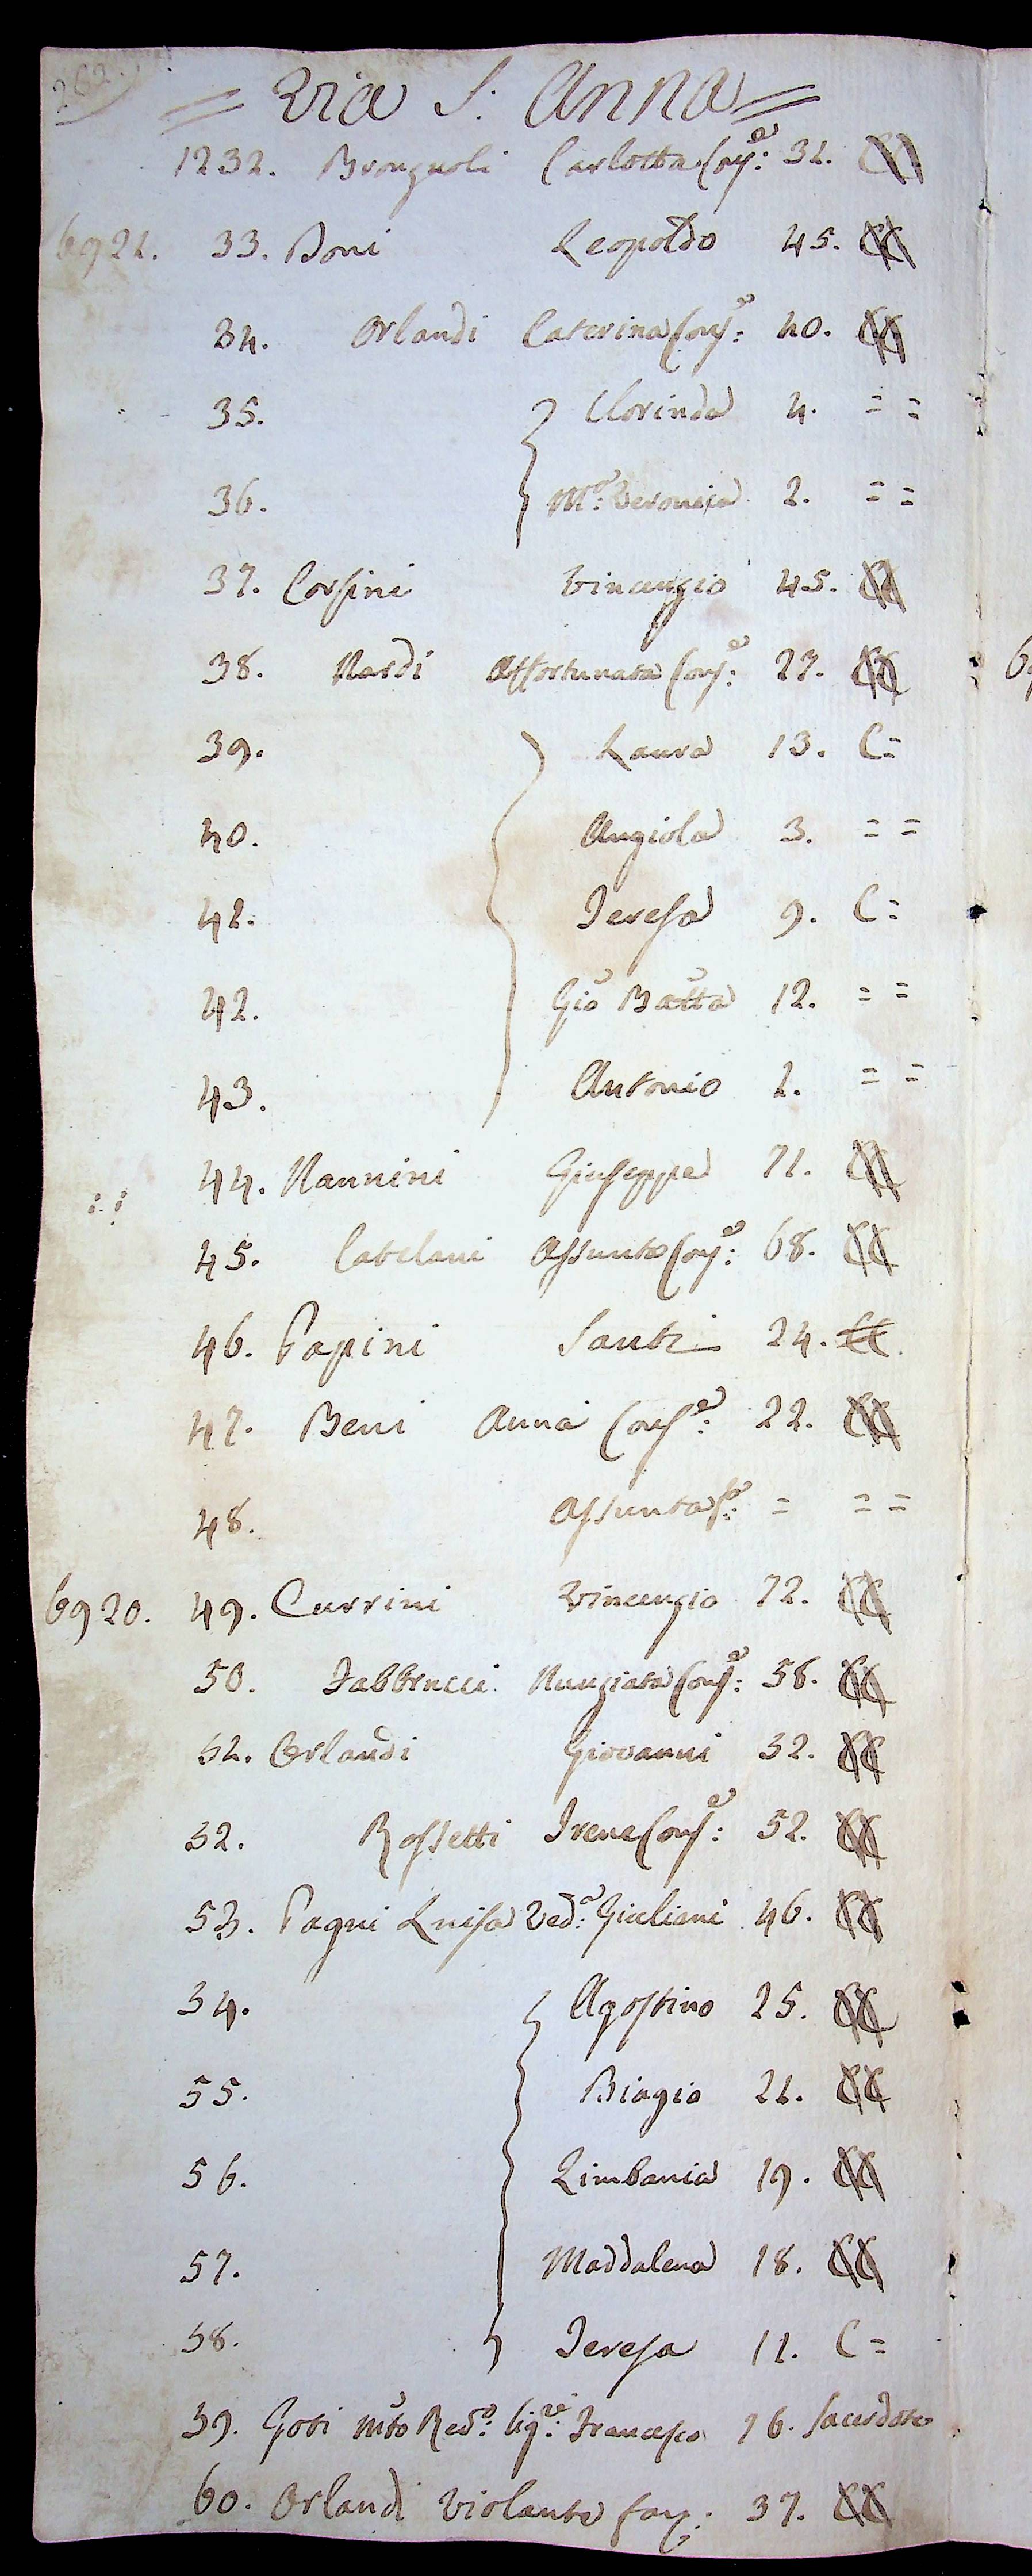 262.
= Via S: Anna =
1232. Brongnoli Carlotta Conj:e 31. CC
6921. 33. Boni Leopoldo 45. CC
34. Orlandi Caterina Conj:e 40. CC
35. Clorinda 4. = =
36. Ma: Veronica 2. = =
37. Corsini Vincenzio 45. CC
38. Nardi Affortunata Conj:e 27. CC
39. Laura 13. C=
40. Angiola 3. = =
41. Teresa 9. C=
42. Gio Batta 12. = =
43. Antonio 1. = =
44. Nannini Giuseppe 71. CC
45. Catelani Assunta Conj:e 68. CC
46. Papini Santi 24. CC.
47. Beni Anna Conj:e 22. CC
48. Assunta fa: = = =
6920. 49. Currini Vincenzio 72. CC
50. Fabbrucci Nunziata Conj:e 58. CC
51. Orlandi Giovanni 52. CC
52. Rossetti Irene Conj:e 52. CC
53. Pagni Luisa Ved:a Giuliani 46. CC
54. Agostino 25. CC
55. Biagio 21. CC
56. Limbania 19. CC
57. Maddalena 18. CC
58. Teresa 11. C=
59. Gori Mto Red:o Sig:re Francesco 76. Sacerdote
60. Orlandi Violante 37. CC